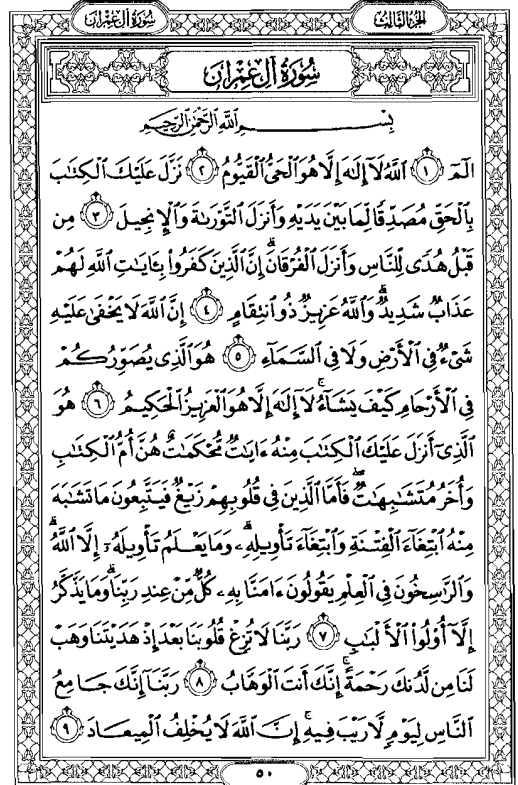 الجزء الثالث
سورة آل عمران
سُورَةُ آلِ عِمْرَان
بِسْمِ اللَّهِ الرَّحْمَٰنِ الرَّحِيمِ
الٓمٓ ١ ٱللَّهُ لَآ إِلَٰهَ إِلَّا هُوَ ٱلْحَىُّ ٱلْقَيُّومُ ٢ نَزَّلَ عَلَيْكَ ٱلْكِتَٰبَ
بِٱلْحَقِّ مُصَدِّقًا لِّمَا بَيْنَ يَدَيْهِ وَأَنزَلَ ٱلتَّوْرَىٰةَ وَٱلْإِنجِيلَ ٣ مِن
قَبْلُ هُدًى لِّلنَّاسِ وَأَنزَلَ ٱلْفُرْقَانَ ۗ إِنَّ ٱلَّذِينَ كَفَرُوا۟ بِـَٔايَٰتِ ٱللَّهِ لَهُمْ
عَذَابٌ شَدِيدٌ ۗ وَٱللَّهُ عَزِيزٌ ذُو ٱنتِقَامٍ ٤ إِنَّ ٱللَّهَ لَا يَخْفَىٰ عَلَيْهِ
شَىْءٌ فِى ٱلْأَرْضِ وَلَا فِى ٱلسَّمَآءِ ٥ هُوَ ٱلَّذِى يُصَوِّرُكُمْ
فِى ٱلْأَرْحَامِ كَيْفَ يَشَآءُ ۚ لَآ إِلَٰهَ إِلَّا هُوَ ٱلْعَزِيزُ ٱلْحَكِيمُ ٦ هُوَ
ٱلَّذِىٓ أَنزَلَ عَلَيْكَ ٱلْكِتَٰبَ مِنْهُ ءَايَٰتٌ مُّحْكَمَٰتٌ هُنَّ أُمُّ ٱلْكِتَٰبِ
وَأُخَرُ مُتَشَٰبِهَٰتٌ ۖ فَأَمَّا ٱلَّذِينَ فِى قُلُوبِهِمْ زَيْغٌ فَيَتَّبِعُونَ مَا تَشَٰبَهَ
مِنْهُ ٱبْتِغَآءَ ٱلْفِتْنَةِ وَٱبْتِغَآءَ تَأْوِيلِهِۦ ۗ وَمَا يَعْلَمُ تَأْوِيلَهُۥٓ إِلَّا ٱللَّهُ ۗ
وَٱلرَّٰسِخُونَ فِى ٱلْعِلْمِ يَقُولُونَ ءَامَنَّا بِهِۦ كُلٌّ مِّنْ عِندِ رَبِّنَا ۗ وَمَا يَذَّكَّرُ
إِلَّآ أُو۟لُوا۟ ٱلْأَلْبَٰبِ ٧ رَبَّنَا لَا تُزِغْ قُلُوبَنَا بَعْدَ إِذْ هَدَيْتَنَا وَهَبْ
لَنَا مِن لَّدُنكَ رَحْمَةً ۚ إِنَّكَ أَنتَ ٱلْوَهَّابُ ٨ رَبَّنَآ إِنَّكَ جَامِعُ
ٱلنَّاسِ لِيَوْمٍ لَّا رَيْبَ فِيهِ ۚ إِنَّ ٱللَّهَ لَا يُخْلِفُ ٱلْمِيعَادَ ٩
٥٠